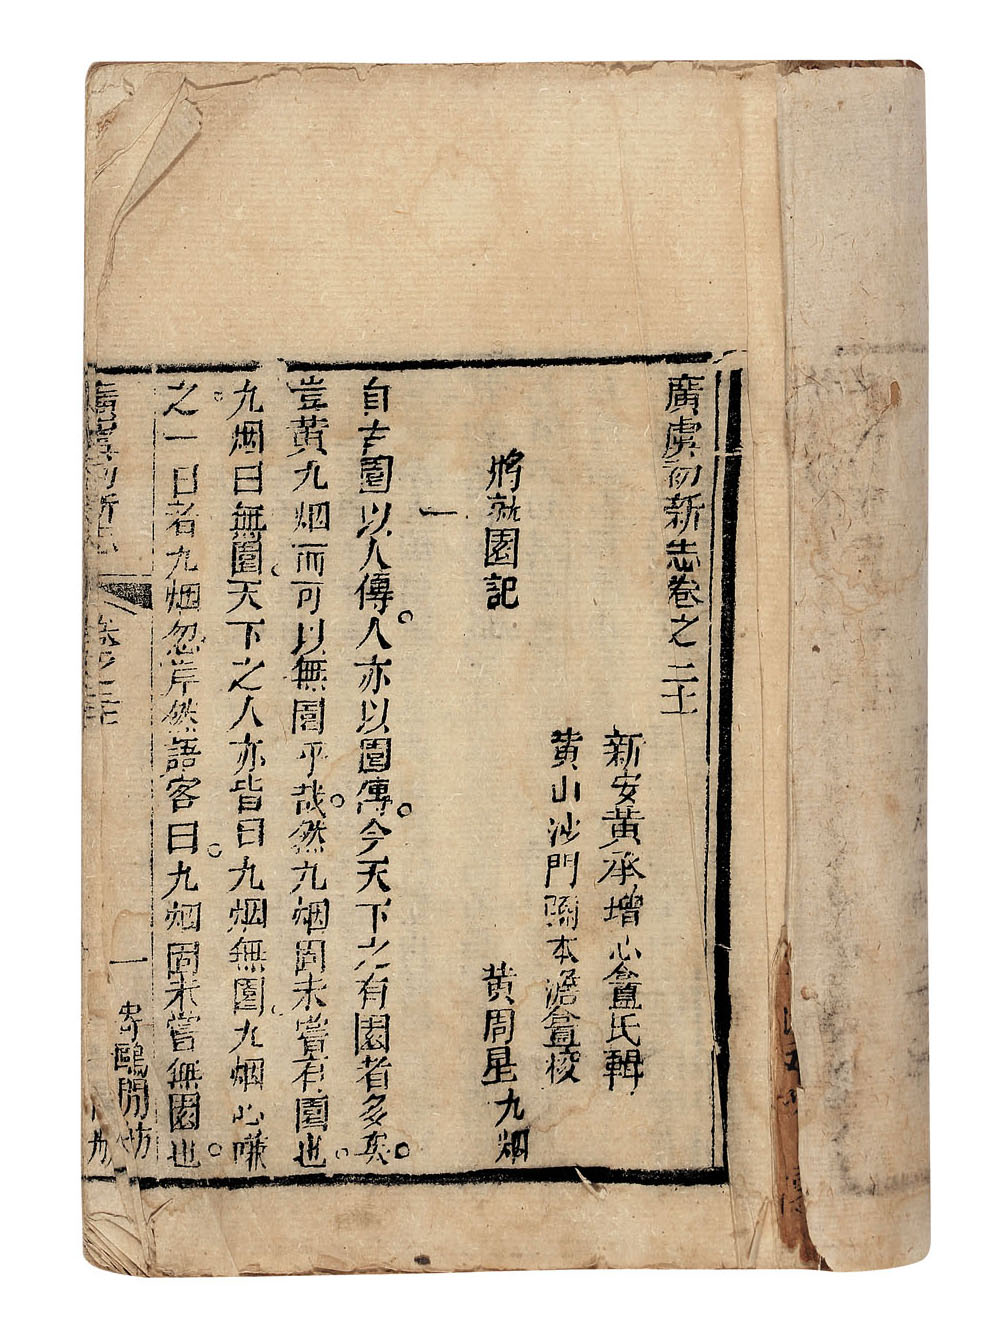 廣虞初新志卷之二十
新安黃承增心盦氏輯
黃山沙門 本澹盦校
將就園記
黃周星九烟
一
自古園以人傳。人亦以園傳。今天下之有園者多矣。
豈黃九烟而可以無園乎哉。然九烟固未嘗有園也。
九烟曰無園。天下之人亦皆曰九烟無園。九烟心嗛
之。一日者九烟忽岸然語客曰。九烟固未嘗無園也。
廣虞初新志
一
寄鷗閒舫